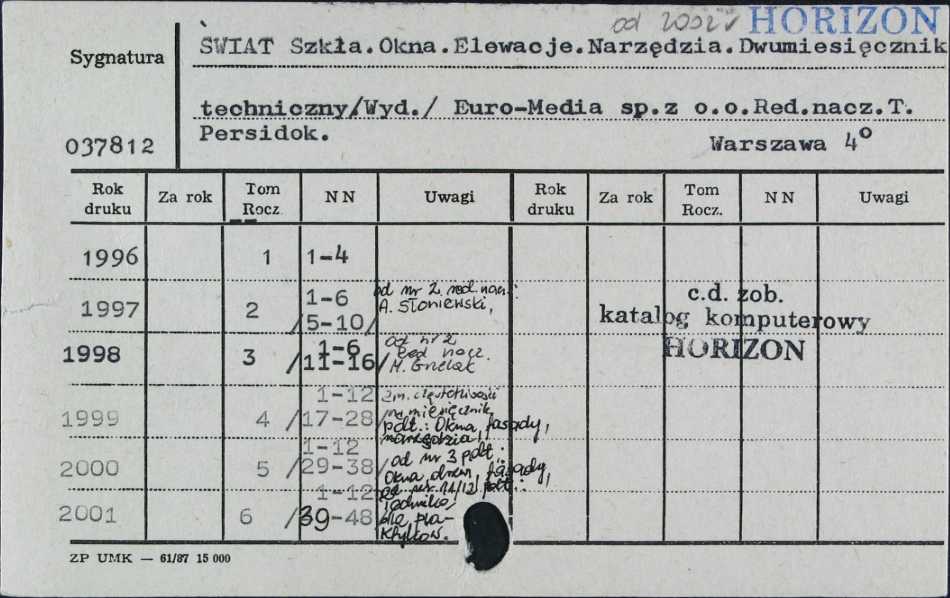 od 2002 HORIZON
Sygnatura
ŚWIAT Szkła.Okna.Elewacje.Narzędzia.Dwumiesięcznik
techniczny/Wyd./ Euro-Media sp.z o.o.Red.nacz.T.
Persidok.
037812
Warszawa 4°
Rok druku Za rok Tom Rocz. NN Uwagi Rok druku Za rok Tom Rocz. NN Uwagi
1996 1 1-4
1997 2 1-6 /5-10/ od nr 2 red. nacz.: A. Słoniewski,
1998 3 1-6 /11-16/ od nr 2 red. nacz. M. Grelak
1999 4 1-12 /17-28/ zm. częstotliwości na miesięcznik, pdt.: Okna, fasady, narzędzia,
2000 5 1-12 /29-38/ od nr 3 pdt.: Okna, drzwi, fasady, od nr. 11/12 pdt.:
2001 6 1-12 /39-48 dla pra-
c.d. zob.
katalog komputerowy
HORIZON
ZP UMK — 61/87 15 000